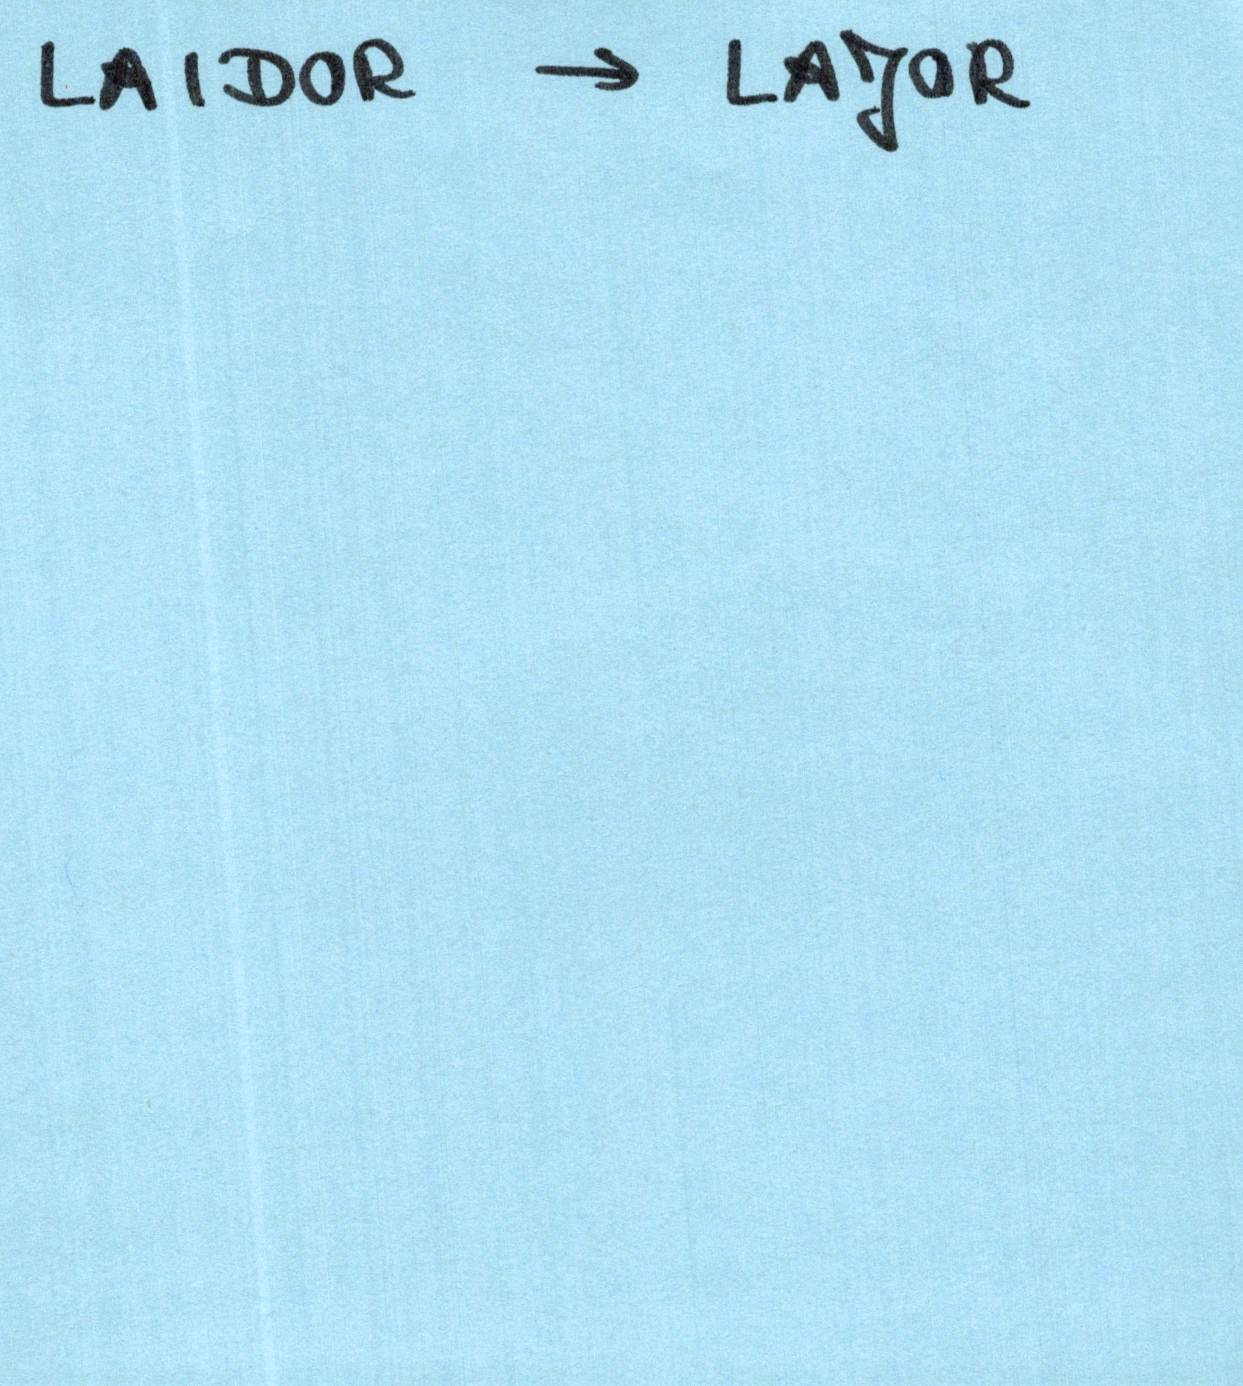 LAIDOR → LAJOR